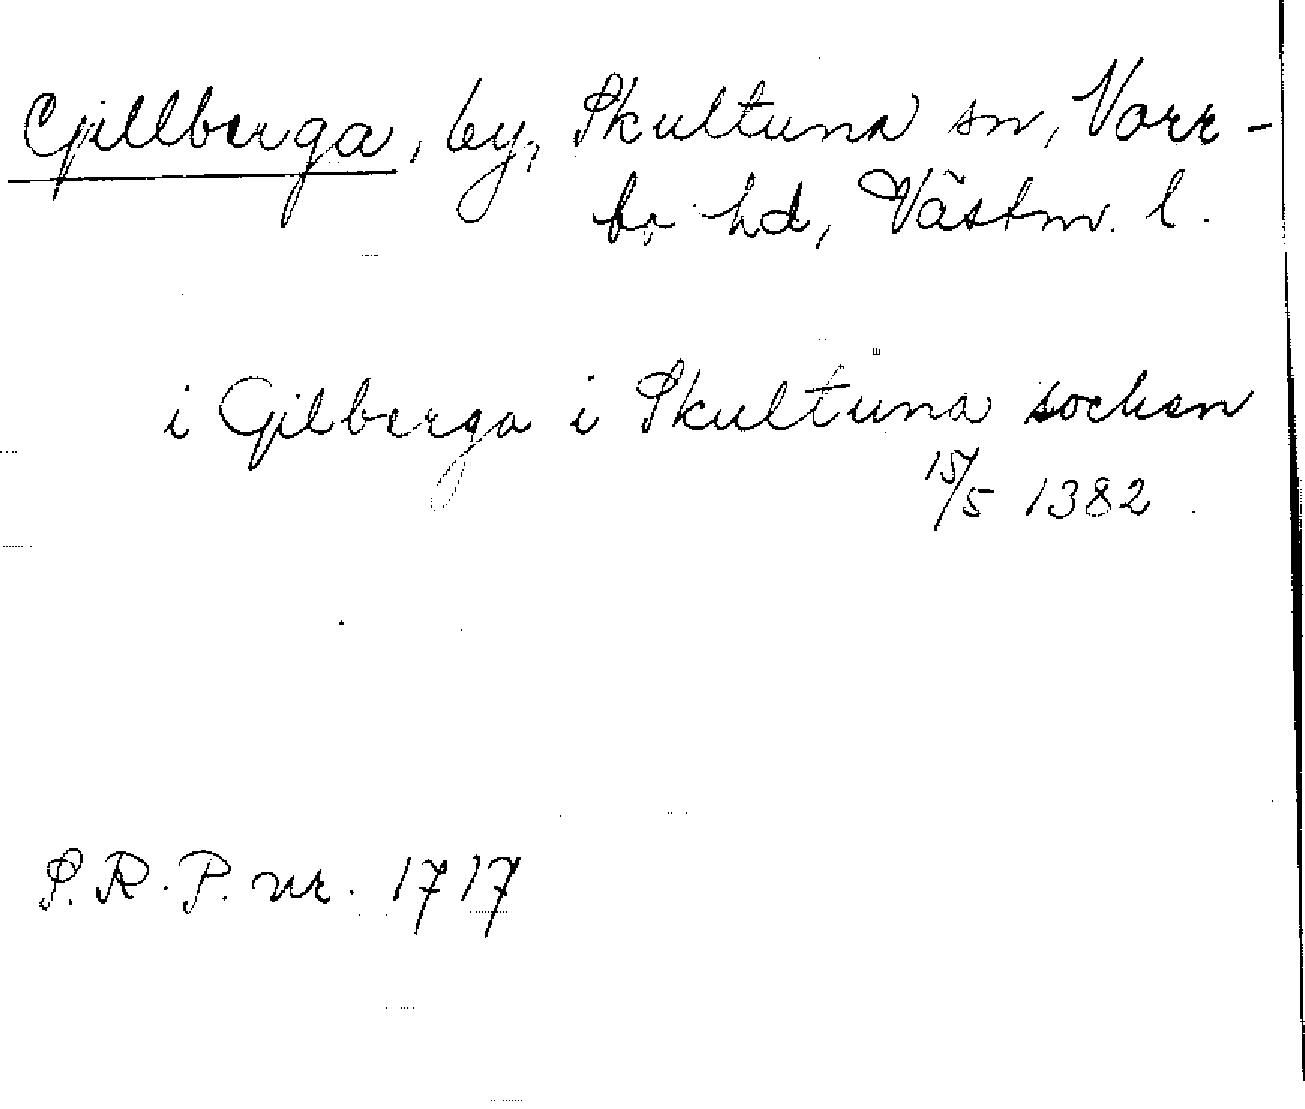 Gillberga, by, Skultuna sn, Norr-
bo hd, Västm. l.
i Gilberga i Skultuna sochen
15/5 1382.
S.R.P. nr. 1717